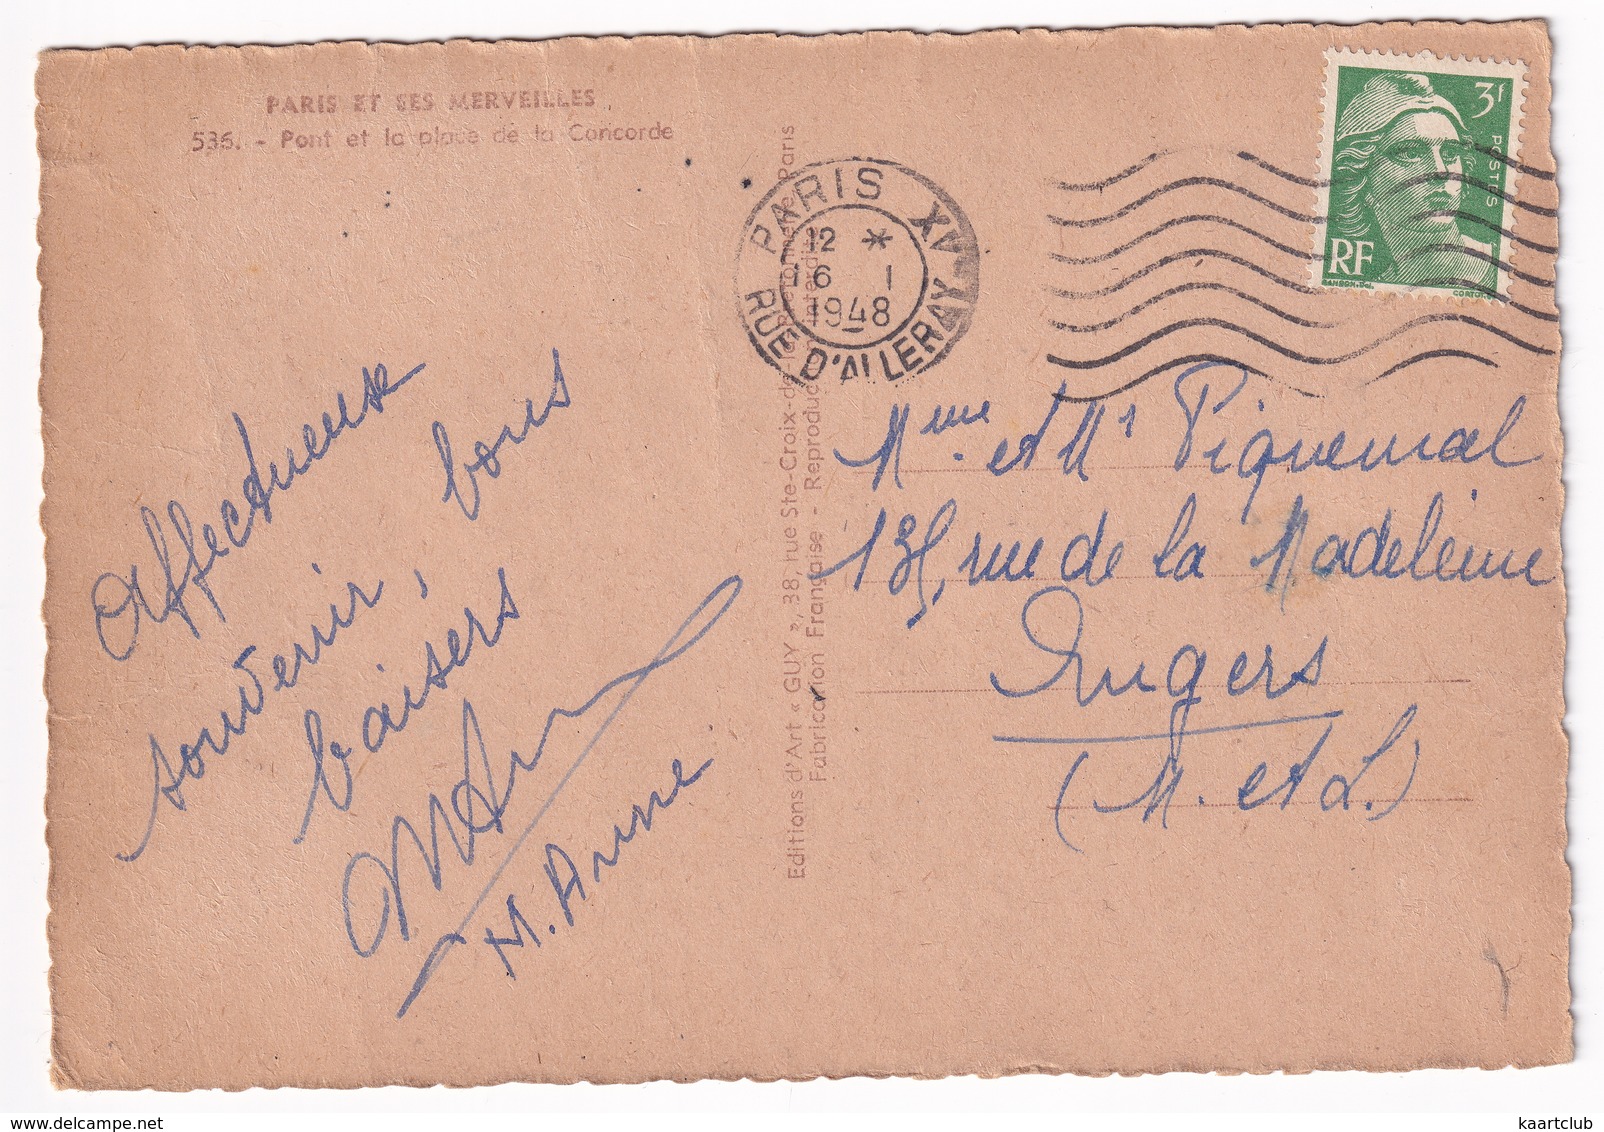 PARIS ET SES MERVEILLES
536. - Pont et la place de la Concorde
Affectueuse
souvenir, bons
baisers
M. Anne
Editions d'Art « GUY », 38, rue Ste-Croix-de-la-Bretonnerie, Paris
Fabrication Française - Reproduction interdite
PARIS XV
12 *
6 1
1948
RUE D'ALLERAY
3f
POSTES
RF
GANDON-DEL.
CORTOT
Mme et Mr Piquemal
135, rue de la Madeleine
Angers
(M. et L.)
kaartclub
delcampe.net